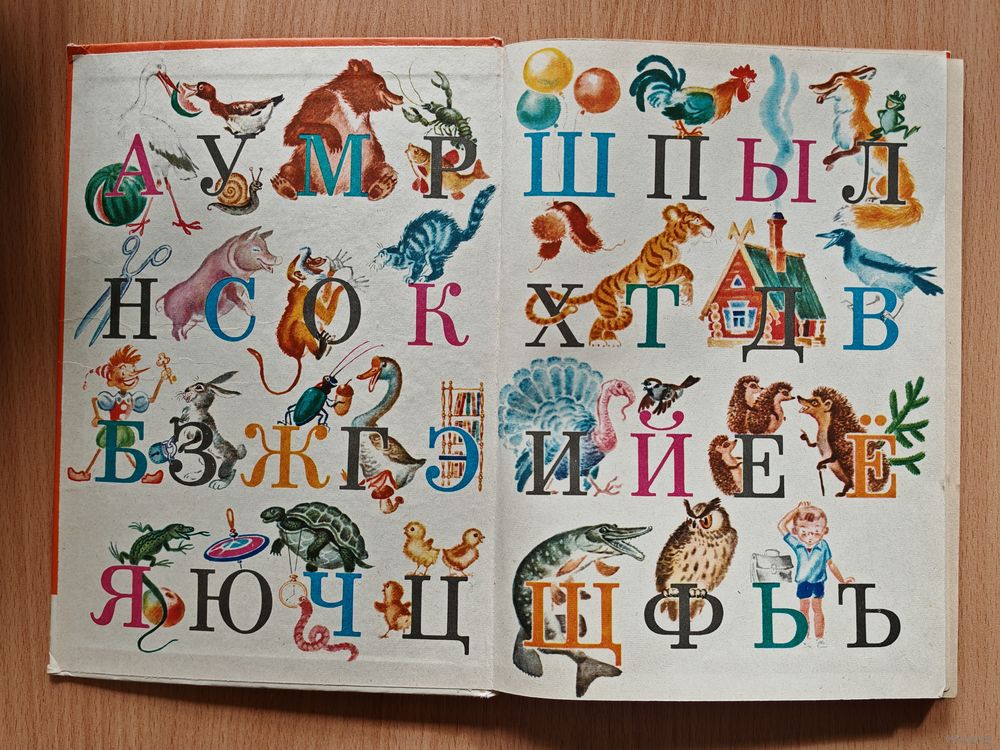 А У М Р
Н С О К
Б З Ж Г Э
Я Ю Ч Ц
Ш П Ы Л
Х Т Д В
И Й Е Ё
Щ Ф Ь Ъ